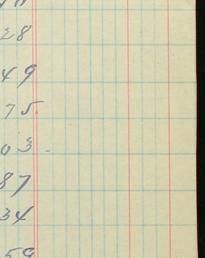 28
49
75.
03-
87
34
59